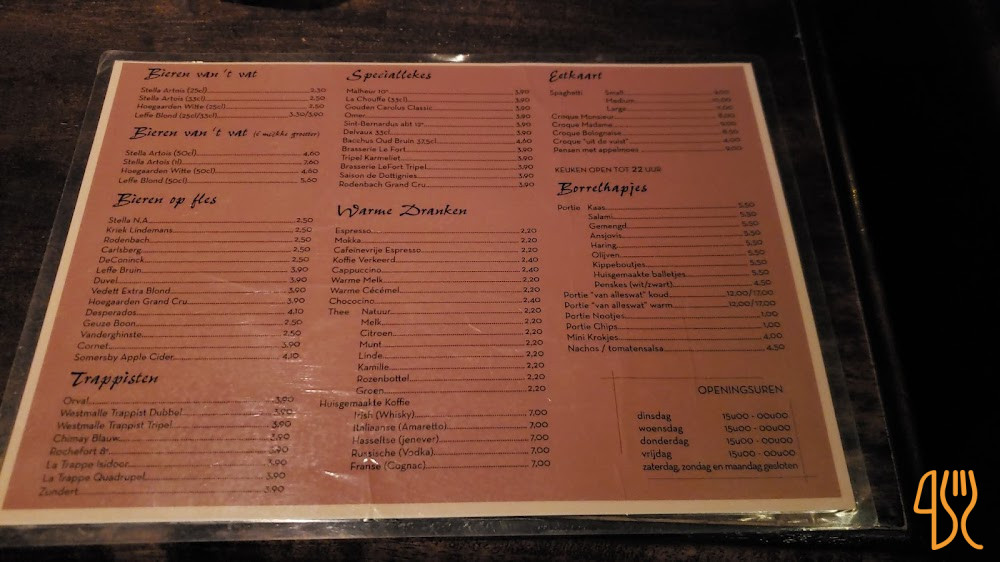 Bieren van 't vat
Stella Artois (25cl) 2,30
Stella Artois (33cl) 2,50
Hoegaarden Witte (25cl) 2,50
Leffe Blond (25cl/33cl) 3,30/3,90
Bieren van 't vat
Stella Artois (50cl) 4,60
Stella Artois (1l) 7,60
Hoegaarden Witte (50cl) 4,60
Leffe Blond (50cl) 5,60
Bieren op fles
Stella N.A. 2,50
Kriek Lindemans 2,50
Rodenbach 2,50
Carlsberg 2,50
DeConinck 2,50
Leffe Bruin 3,90
Duvel 3,90
Vedett Extra Blond 3,90
Hoegaarden Grand Cru 3,90
Desperados 4,10
Geuze Boon 2,50
Vanderghinste 2,50
Cornet 3,90
Somersby Apple Cider 4,10
Trappisten
Orval 3,90
Westmalle Trappist Dubbel 3,90
Westmalle Trappist Tripel 3,90
Chimay Blauw 3,90
Rochefort 8° 3,90
La Trappe Isidoor 3,90
La Trappe Quadrupel 3,90
Zundert 3,90
Speciallekes
Malheur 10° 3,90
La Chouffe (33cl) 3,90
Gouden Carolus Classic 3,90
Omer 3,90
Sint-Bernardus abt 12° 3,90
Delvaux 33cl 3,90
Bacchus Oud Bruin 37,5cl 4,60
Brasserie Le Fort 3,90
Tripel Karmeliet 3,90
Brasserie LeFort Tripel 3,90
Saison de Dottignies 3,90
Rodenbach Grand Cru 3,90
Warme Dranken
Espresso 2,20
Mokka 2,20
Cafeinevrije Espresso 2,20
Koffie Verkeerd 2,40
Cappuccino 2,40
Warme Melk 2,20
Warme Cécémel 2,20
Chococino 2,40
Thee Natuur 2,20
Melk 2,20
Citroen 2,20
Munt 2,20
Linde 2,20
Kamille 2,20
Rozenbottel 2,20
Groen 2,20
Huisgemaakte Koffie
Irish (Whisky) 7,00
Italiaanse (Amaretto) 7,00
Hasseltse (jenever) 7,00
Russische (Vodka) 7,00
Franse (Cognac) 7,00
Eetkaart
Spaghetti Small
Medium
Large
Croque Monsieur
Croque Madame
Croque Bolognaise
Croque "uit de vuist"
Pensen met appelmoes
KEUKEN OPEN TOT 22 UUR
Borrelhapjes
Portie Kaas 5,50
Salami 5,50
Gemengd 5,50
Ansjovis 5,50
Haring 5,50
Olijven 5,50
Kippeboutjes 5,50
Huisgemaakte balletjes 5,50
Penskes (wit/zwart) 4,50
Portie "van alleswat" koud 12,00/17,00
Portie "van alleswat" warm 12,00/17,00
Portie Nootjes 1,00
Portie Chips 1,00
Mini Krokjes 4,00
Nachos / tomatensalsa 4,50
OPENINGSUREN
dinsdag 15u00 - 00u00
woensdag 15u00 - 00u00
donderdag 15u00 - 00u00
vrijdag 15u00 - 00u00
zaterdag, zondag en maandag gesloten